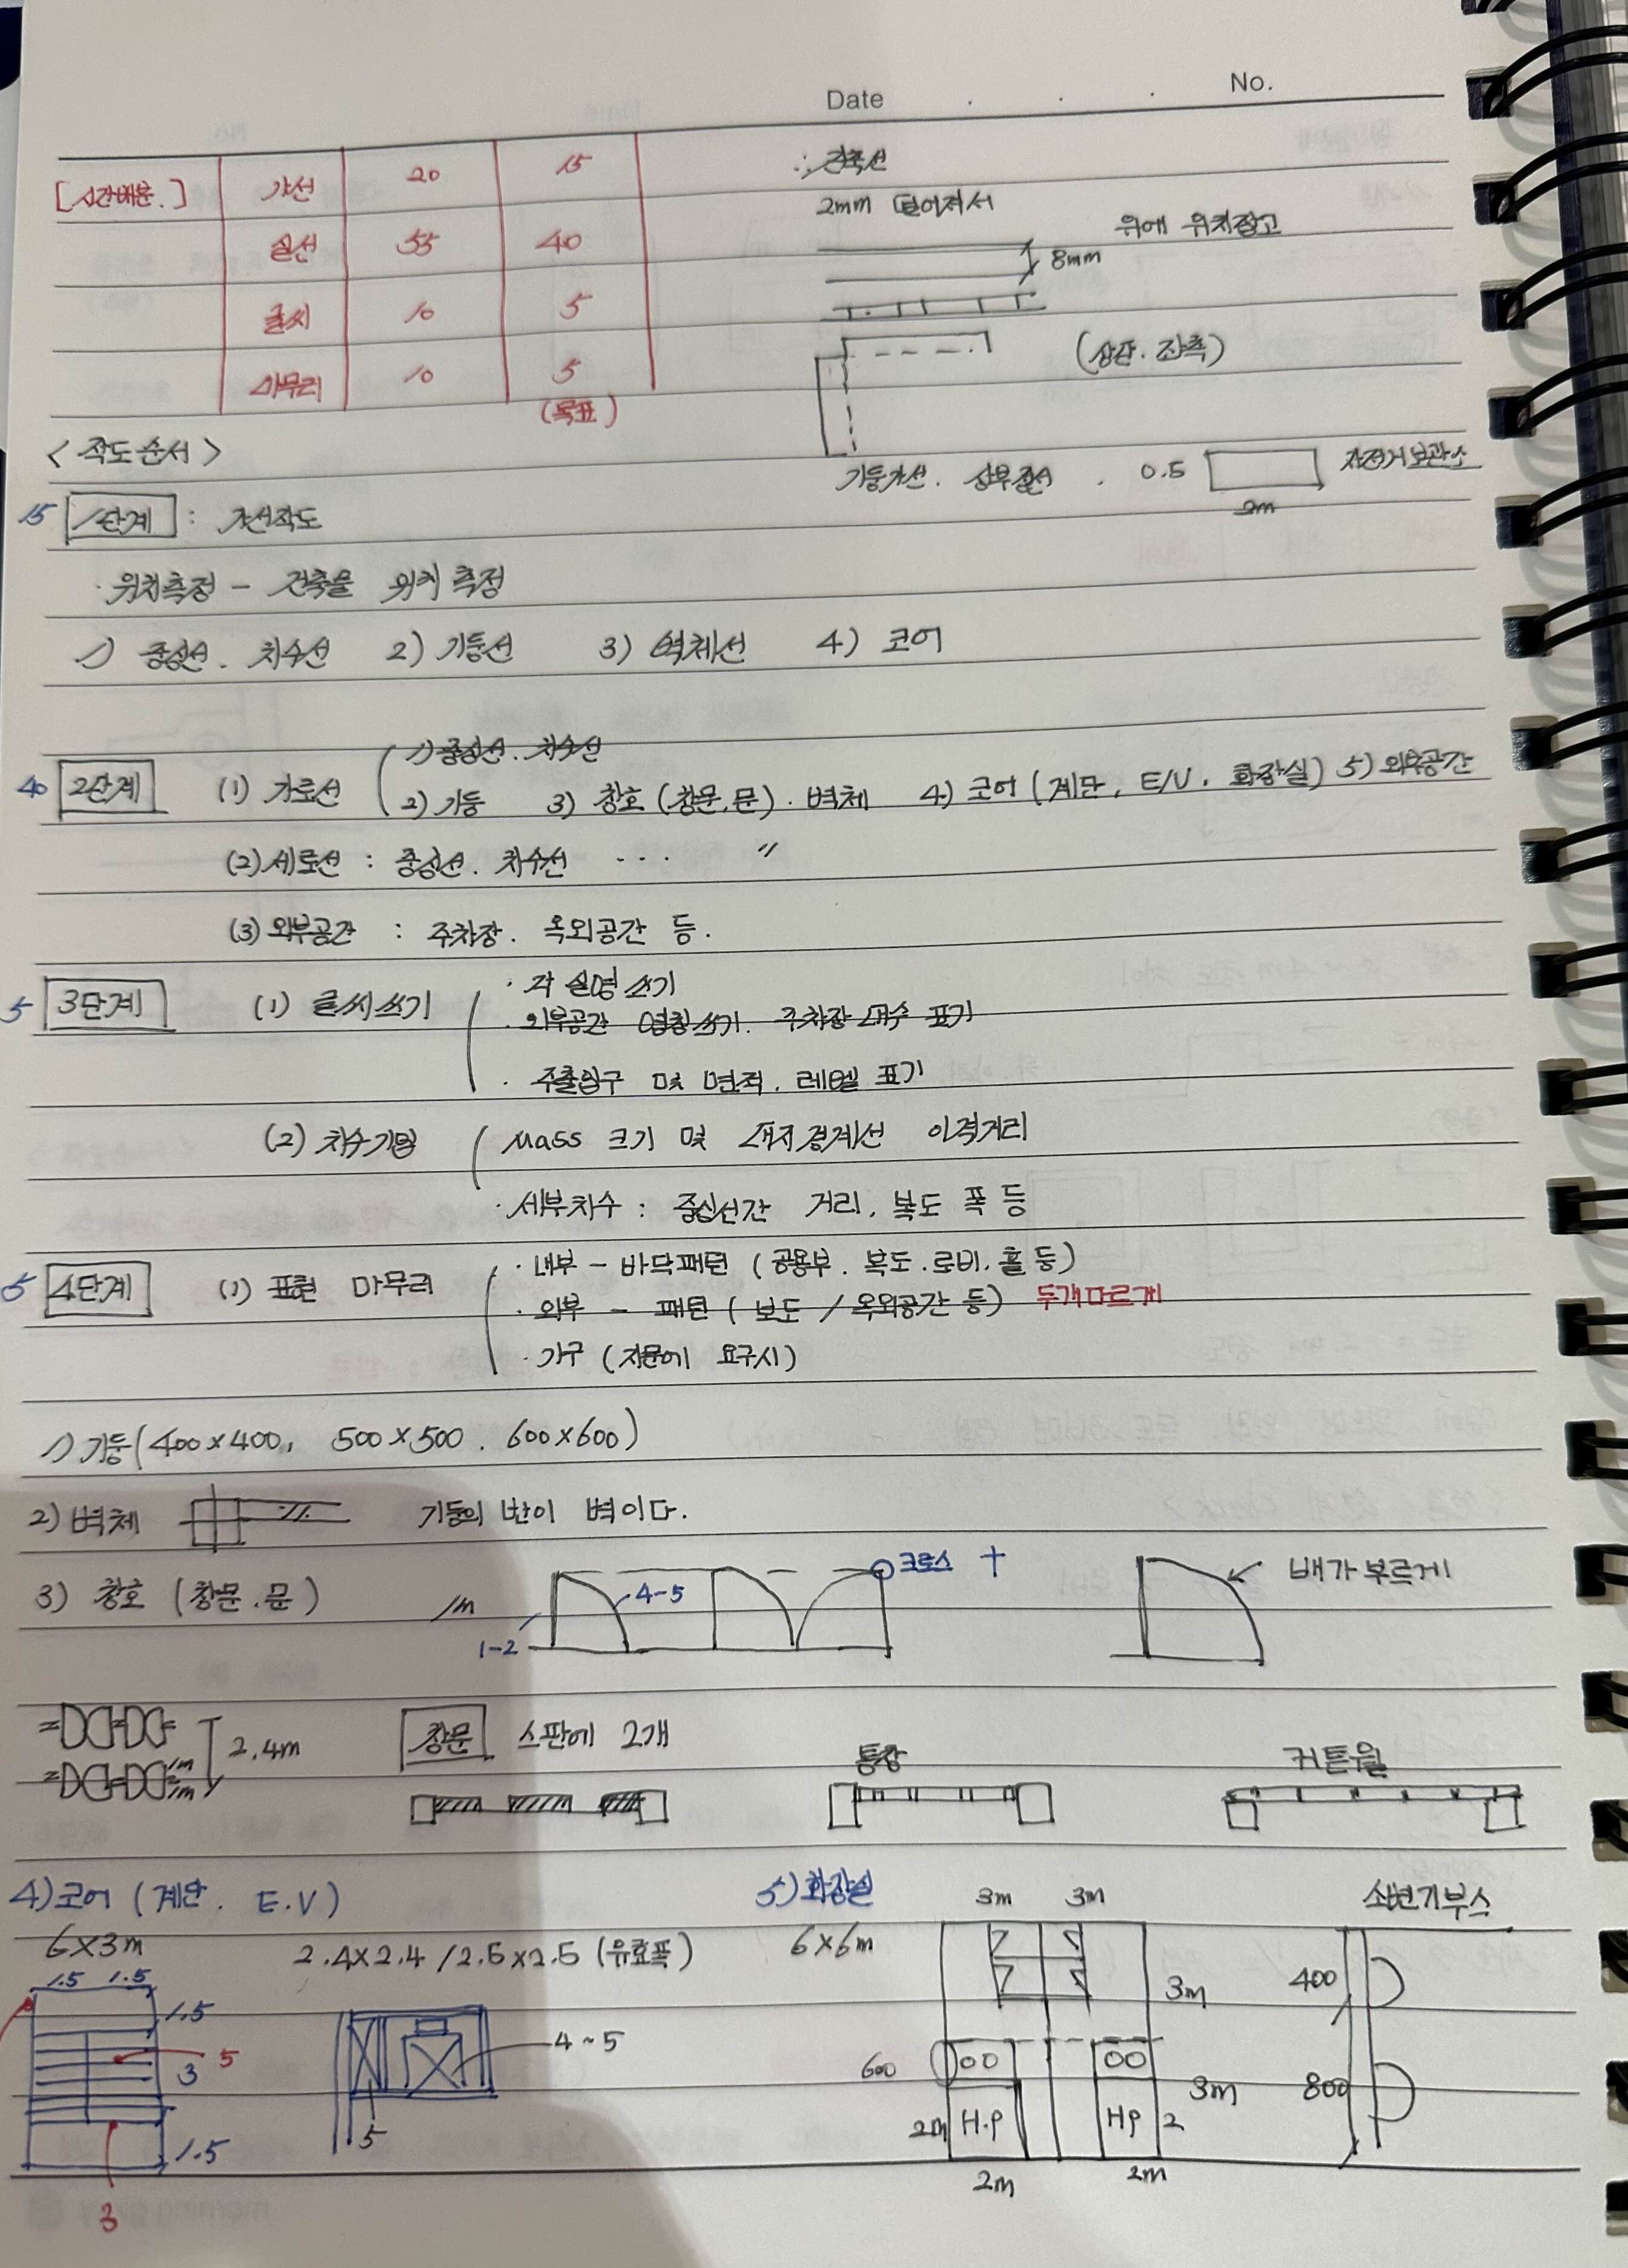 Date . . . No.
[시간배분.] 가선 20 15
실선 55 40
글씨 10 5
마무리 10 5
(목표)
∴ 건축선
2mm 떨어져서
위에 위치잡고
8mm
(상관. 좌측)
기둥가선. 상부질선 . 0.5 자전거보관소
2m
<작도순서>
15 1단계 : 가선작도
· 위치측정 - 건축물 위치 측정
1) 중심선. 치수선 2) 기둥선 3) 벽체선 4) 코어
40 2단계 (1) 가로선 1) 중심선. 치수선
2) 기둥 3) 창호 (창문.문) . 벽체 4) 코어 (계단, E/V. 화장실) 5) 외부공간
(2) 세로선 : 중심선. 치수선 ··· 〃
(3) 외부공간 : 주차장. 옥외공간 등.
5 3단계 (1) 글씨쓰기 · 각 실명 쓰기
· 외부공간 명칭쓰기. 주차장 대수 표기
· 주출입구 및 면적. 레벨 표기
(2) 치수기입 Mass 크기 및 대지경계선 이격거리
· 세부치수 : 중심선간 거리, 복도 폭 등
5 4단계 (1) 표현 마무리 · 내부 - 바닥패턴 (공용부. 복도.로비.홀 등)
· 외부 - 패턴 (보도 / 옥외공간 등) 두개다르게
· 가구 (지문에 요구시)
1) 기둥(400×400, 500×500. 600×600)
2) 벽체 기둥의 반이 벽이다.
3) 창호 (창문.문) 1m 1-2 4-5 크로스 + 배가부르게
2.4m 1m 1m
창문 스판에 2개
통창 커튼월
4) 코어 (계단. E.V)
6×3m 2.4×2.4 / 2.5×2.5 (유효폭)
1.5 1.5
1.5
5
3
1.5
3
4~5
5
5) 화장실
6×6m
3m 3m
3m
600
3m
2m H.P HP 2
2m 2m
소변기부스
400
800